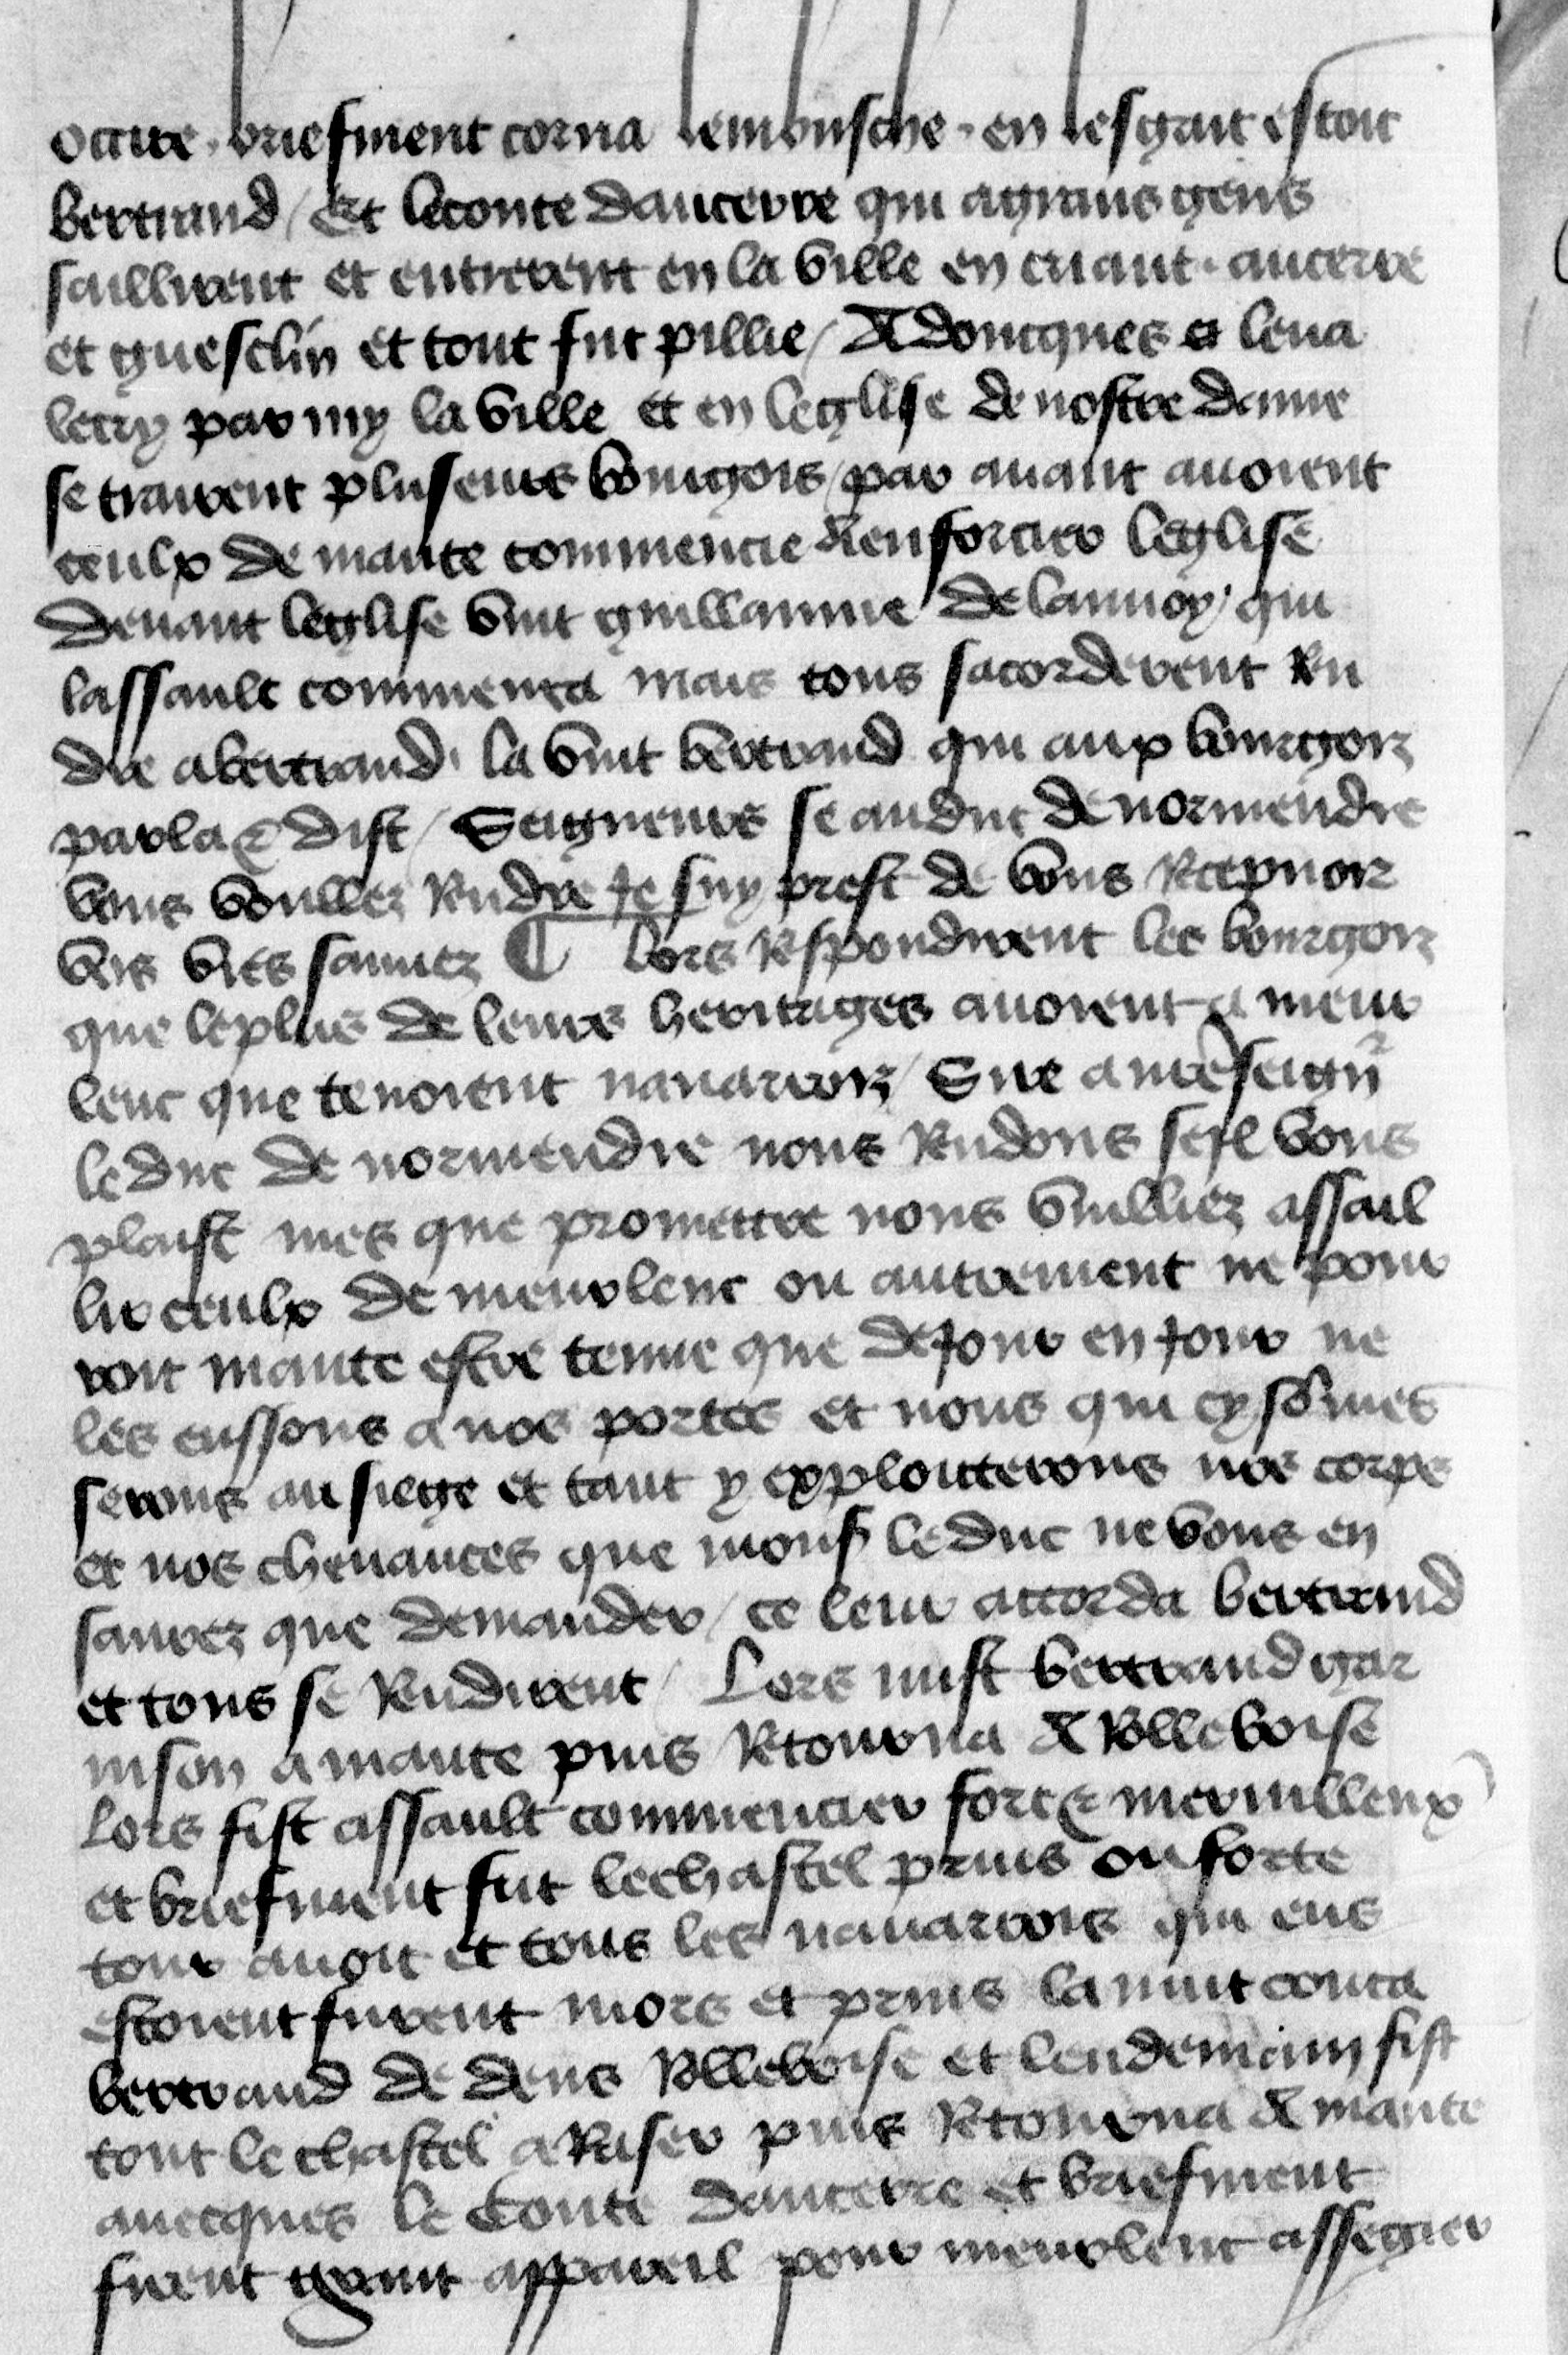 occire . briefment corna lembusche . en lesgait estoit
bertrand / Et leconte daucerre qui agrans gens
saillirent et entrerent en la ville en criant . aucerre
et guesclin et tout fut pillie / Adoncques leua
lecry par my la ville et en leglise de nostre dame
se trairent pluseurs bourgois / par auant auoient
ceulx de mante commencie denforcier leglise
deuant leglise vint guillaume delaunoy / qui
lassault commenca mais tous sacorderent Ren
dre abertrand . la vint bertrand qui aux bourgois
parla & dist / Seigneurs se auduc de normendie
vous voullez Rendre je suy prest de vous Recepuoir
voz vies sauuez ¶ lors Respondirent les bourgois
que leplus de leurs heritages auoient a meur
lenc que tenoient nauarrois / Sire a nr̃e seignr̃
leduc de normendie nous Rendons seil vous
plaist mes que promettre nous vuilliez assail
lir ceulx de meurlenc ou autrement ne pour
roit mante estre tenue que dejour en jour ne
les eussons a nos portes et nous qui cy som̃es
serons au siege et tant y exploiterons nos corps
et nos cheuances que mons̃ leduc ne vous en
saurez que demander / ce leur accorda bertrand
et tous se Rendirent / Lors mist bertrand gar
nison a mante puis Retourna A Rolleboise
Lors fist assault commencier fort & merueilleux
et briefment fut lechastel prins ou forte
tour auoit et tous les nauarrois qui ens
estoient furent mors et prins lanuit couca
bertrand de dens Rolleboise et lendemain fist
tout lechastel a Raser puis Retourna A mante
auecques le Conte daucerre et briefment
firent grant appareil pour meurlent assegier